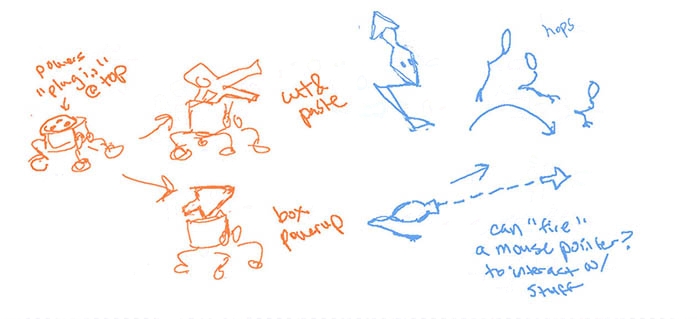 powers
"plug in"
@ top
cut &
paste
box
powerup
hops
can "fire"
a mouse pointer?
to interact w/
stuff